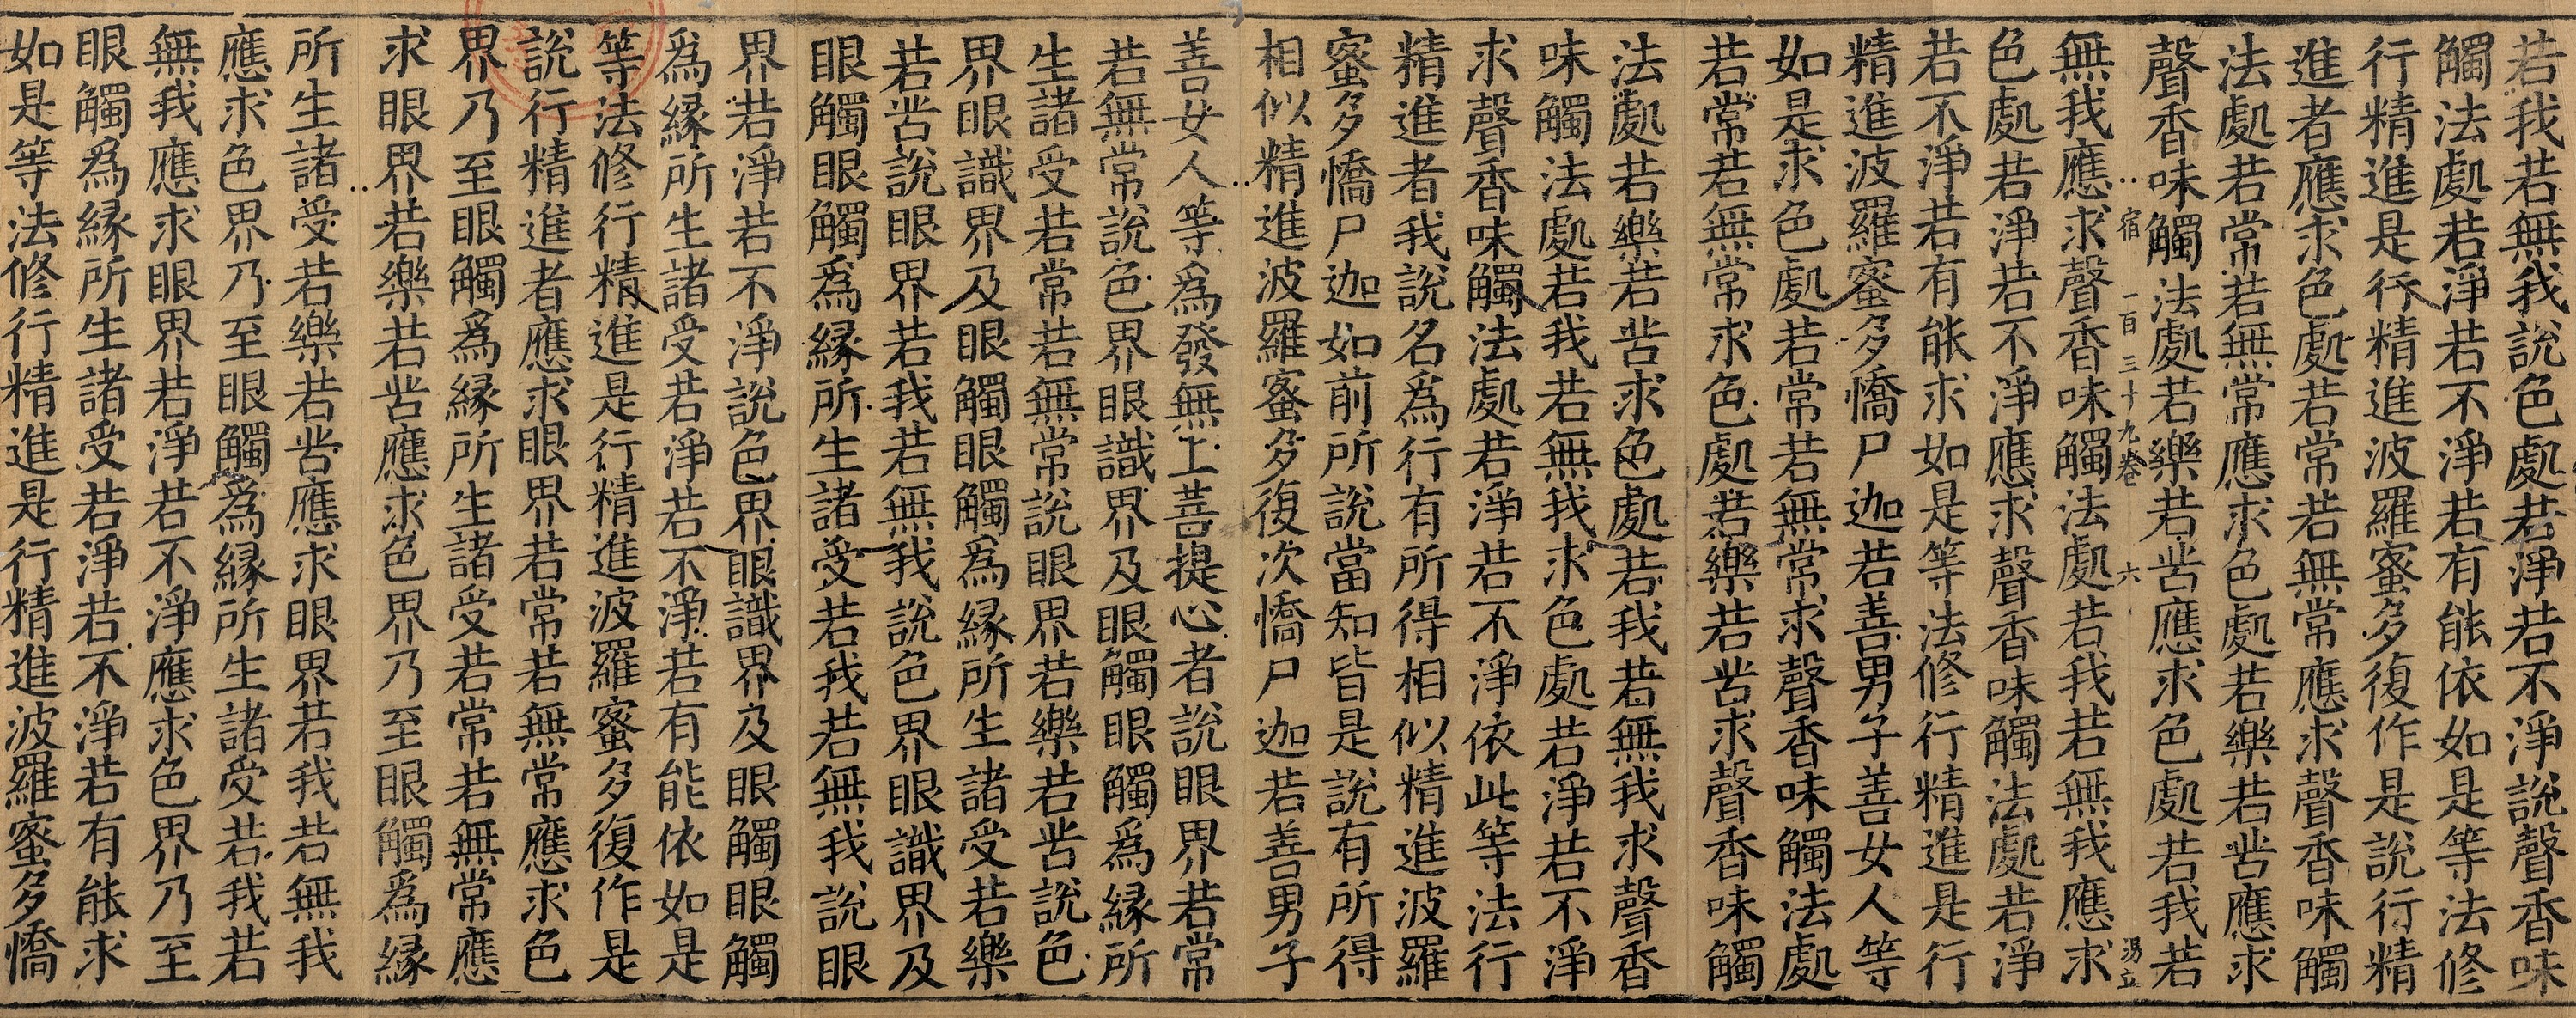 若我若無我說色處若淨若不淨說聲香味
觸法處若淨若不淨若有能依如是等法修
行精進是行精進波羅蜜多復作是說行精
進者應求色處若常若無常應求聲香味觸
法處若常若無常應求色處若樂若苦應求
聲香味觸法處若樂若苦應求色處若我若
宿 一百三十九卷 六
無我應求聲香味觸法處若我若無我應求
色處若淨若不淨應求聲香味觸法處若淨
若不淨若有能求如是等法修行精進是行
精進波羅蜜多憍尸迦若善男子善女人等
如是求色處若常若無常求聲香味觸法處
若常若無常求色處若樂若苦求聲香味觸
法處若樂若苦求色處若我若無我求聲香
味觸法處若我若無我求色處若淨若不淨
求聲香味觸法處若淨若不淨依此等法行
精進者我說名為行有所得相似精進波羅
蜜多憍尸迦如前所說當知皆是說有所得
相似精進波羅蜜多復次憍尸迦若善男子
善女人等為發無上菩提心者說眼界若常
若無常說色界眼識界及眼觸眼觸為緣所
生諸受若常若無常說眼界若樂若苦說色
界眼識界及眼觸眼觸為緣所生諸受若樂
若苦說眼界若我若無我說色界眼識界及
眼觸眼觸為緣所生諸受若我若無我說眼
界若淨若不淨說色界眼識界及眼觸眼觸
為緣所生諸受若淨若不淨若有能依如是
等法修行精進是行精進波羅蜜多復作是
說行精進者應求眼界若常若無常應求色
界乃至眼觸為緣所生諸受若常若無常應
求眼界若樂若苦應求色界乃至眼觸為緣
所生諸受若樂若苦應求眼界若我若無我
應求色界乃至眼觸為緣所生諸受若我若
無我應求眼界若淨若不淨應求色界乃至
眼觸為緣所生諸受若淨若不淨若有能求
如是等法修行精進是行精進波羅蜜多憍